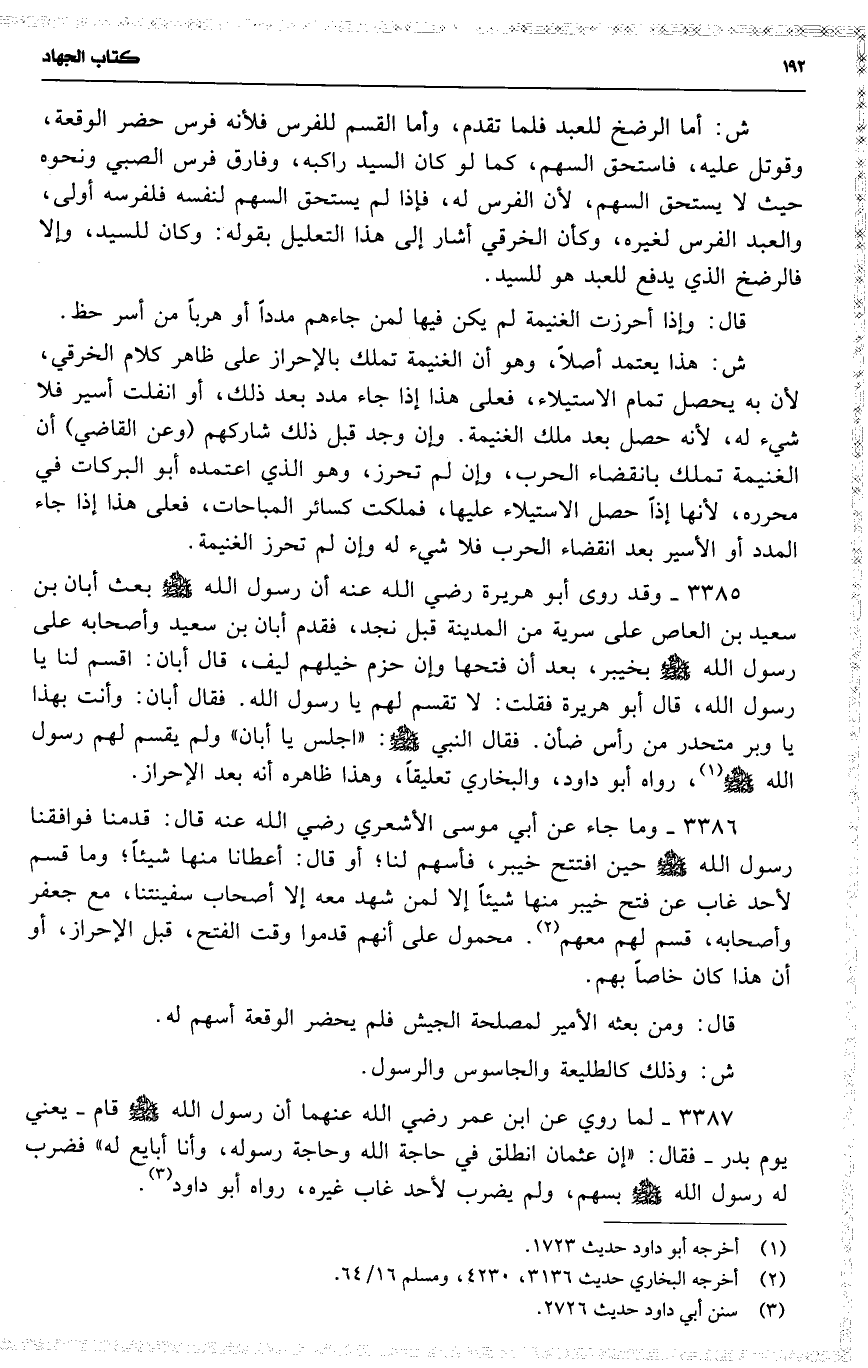 ١٩٢
كتاب الجهاد
ش: أما الرضخ للعبد فلما تقدم، وأما القسم للفرس فلأنه فرس حضر الوقعة،
وقوتل عليه، فاستحق السهم، كما لو كان السيد راكبه، وفارق فرس الصبي ونحوه
حيث لا يستحق السهم، لأن الفرس له، فإذا لم يستحق السهم لنفسه فلفرسه أولى،
والعبد الفرس لغيره، وكأن الخرقي أشار إلى هذا التعليل بقوله: وكان للسيد، وإلا
فالرضخ الذي يدفع للعبد هو للسيد.
قال: وإذا أحرزت الغنيمة لم يكن فيها لمن جاءهم مدداً أو هرباً من أسر حظ.
ش: هذا يعتمد أصلاً، وهو أن الغنيمة تملك بالإحراز على ظاهر كلام الخرقي،
لأن به يحصل تمام الاستيلاء، فعلى هذا إذا جاء مدد بعد ذلك، أو انفلت أسير فلا
شيء له، لأنه حصل بعد ملك الغنيمة. وإن وجد قبل ذلك شاركهم (وعن القاضي) أن
الغنيمة تملك بانقضاء الحرب، وإن لم تحرز، وهو الذي اعتمده أبو البركات في
محرره، لأنها إذاً حصل الاستيلاء عليها، فملكت كسائر المباحات، فعلى هذا إذا جاء
المدد أو الأسير بعد انقضاء الحرب فلا شيء له وإن لم تحرز الغنيمة.
٣٣٨٥ ـ وقد روى أبو هريرة رضي الله عنه أن رسول الله ﷺ بعث أبان بن
سعيد بن العاص على سرية من المدينة قبل نجد، فقدم أبان بن سعيد وأصحابه على
رسول الله ﷺ بخيبر، بعد أن فتحها وإن حزم خيلهم ليف، قال أبان: اقسم لنا يا
رسول الله، قال أبو هريرة فقلت: لا تقسم لهم يا رسول الله. فقال أبان: وأنت بهذا
يا وبر متحدر من رأس ضأن. فقال النبي ﷺ: «اجلس يا أبان» ولم يقسم لهم رسول
الله ﷺ(١)، رواه أبو داود، والبخاري تعليقاً، وهذا ظاهره أنه بعد الإحراز.
٣٣٨٦ ـ وما جاء عن أبي موسى الأشعري رضي الله عنه قال: قدمنا فوافقنا
رسول الله ﷺ حين افتتح خيبر، فأسهم لنا؛ أو قال: أعطانا منها شيئاً؛ وما قسم
لأحد غاب عن فتح خيبر منها شيئاً إلا لمن شهد معه إلا أصحاب سفينتنا، مع جعفر
وأصحابه، قسم لهم معهم(٢). محمول على أنهم قدموا وقت الفتح، قبل الإحراز، أو
أن هذا كان خاصاً بهم.
قال: ومن بعثه الأمير لمصلحة الجيش فلم يحضر الوقعة أسهم له.
ش: وذلك كالطليعة والجاسوس والرسول.
٣٣٨٧ ـ لما روي عن ابن عمر رضي الله عنهما أن رسول الله ﷺ قام ـ يعني
يوم بدر ـ فقال: «إن عثمان انطلق في حاجة الله وحاجة رسوله، وأنا أبايع له» فضرب
له رسول الله ﷺ بسهم، ولم يضرب لأحد غاب غيره، رواه أبو داود(٣).
(١) أخرجه أبو داود حديث ١٧٢٣.
(٢) أخرجه البخاري حديث ٣١٣٦، ٤٢٣٠، ومسلم ٦٤/١٦.
(٣) سنن أبي داود حديث ٢٧٢٦.